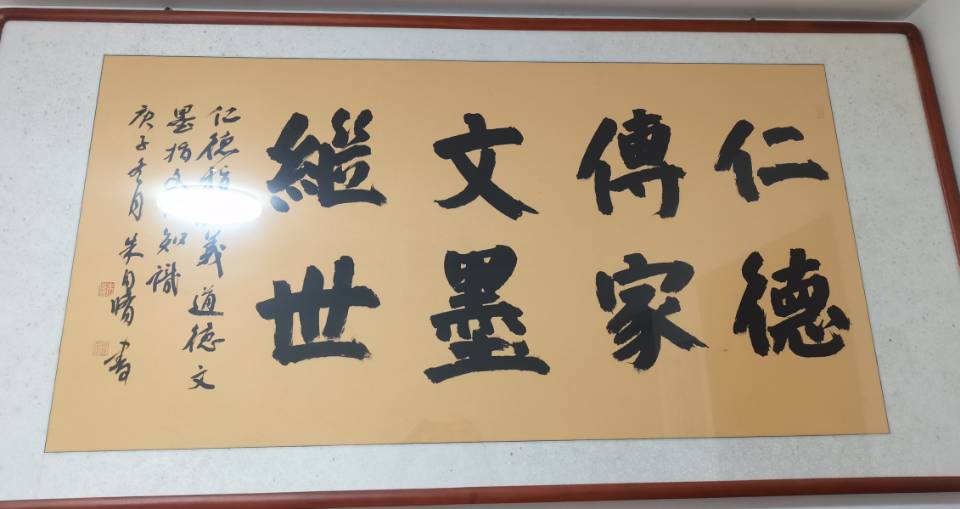 仁德
傳家
文墨
繼世
仁德指 義道德文
墨指文 知識
庚子冬月朱自曙書